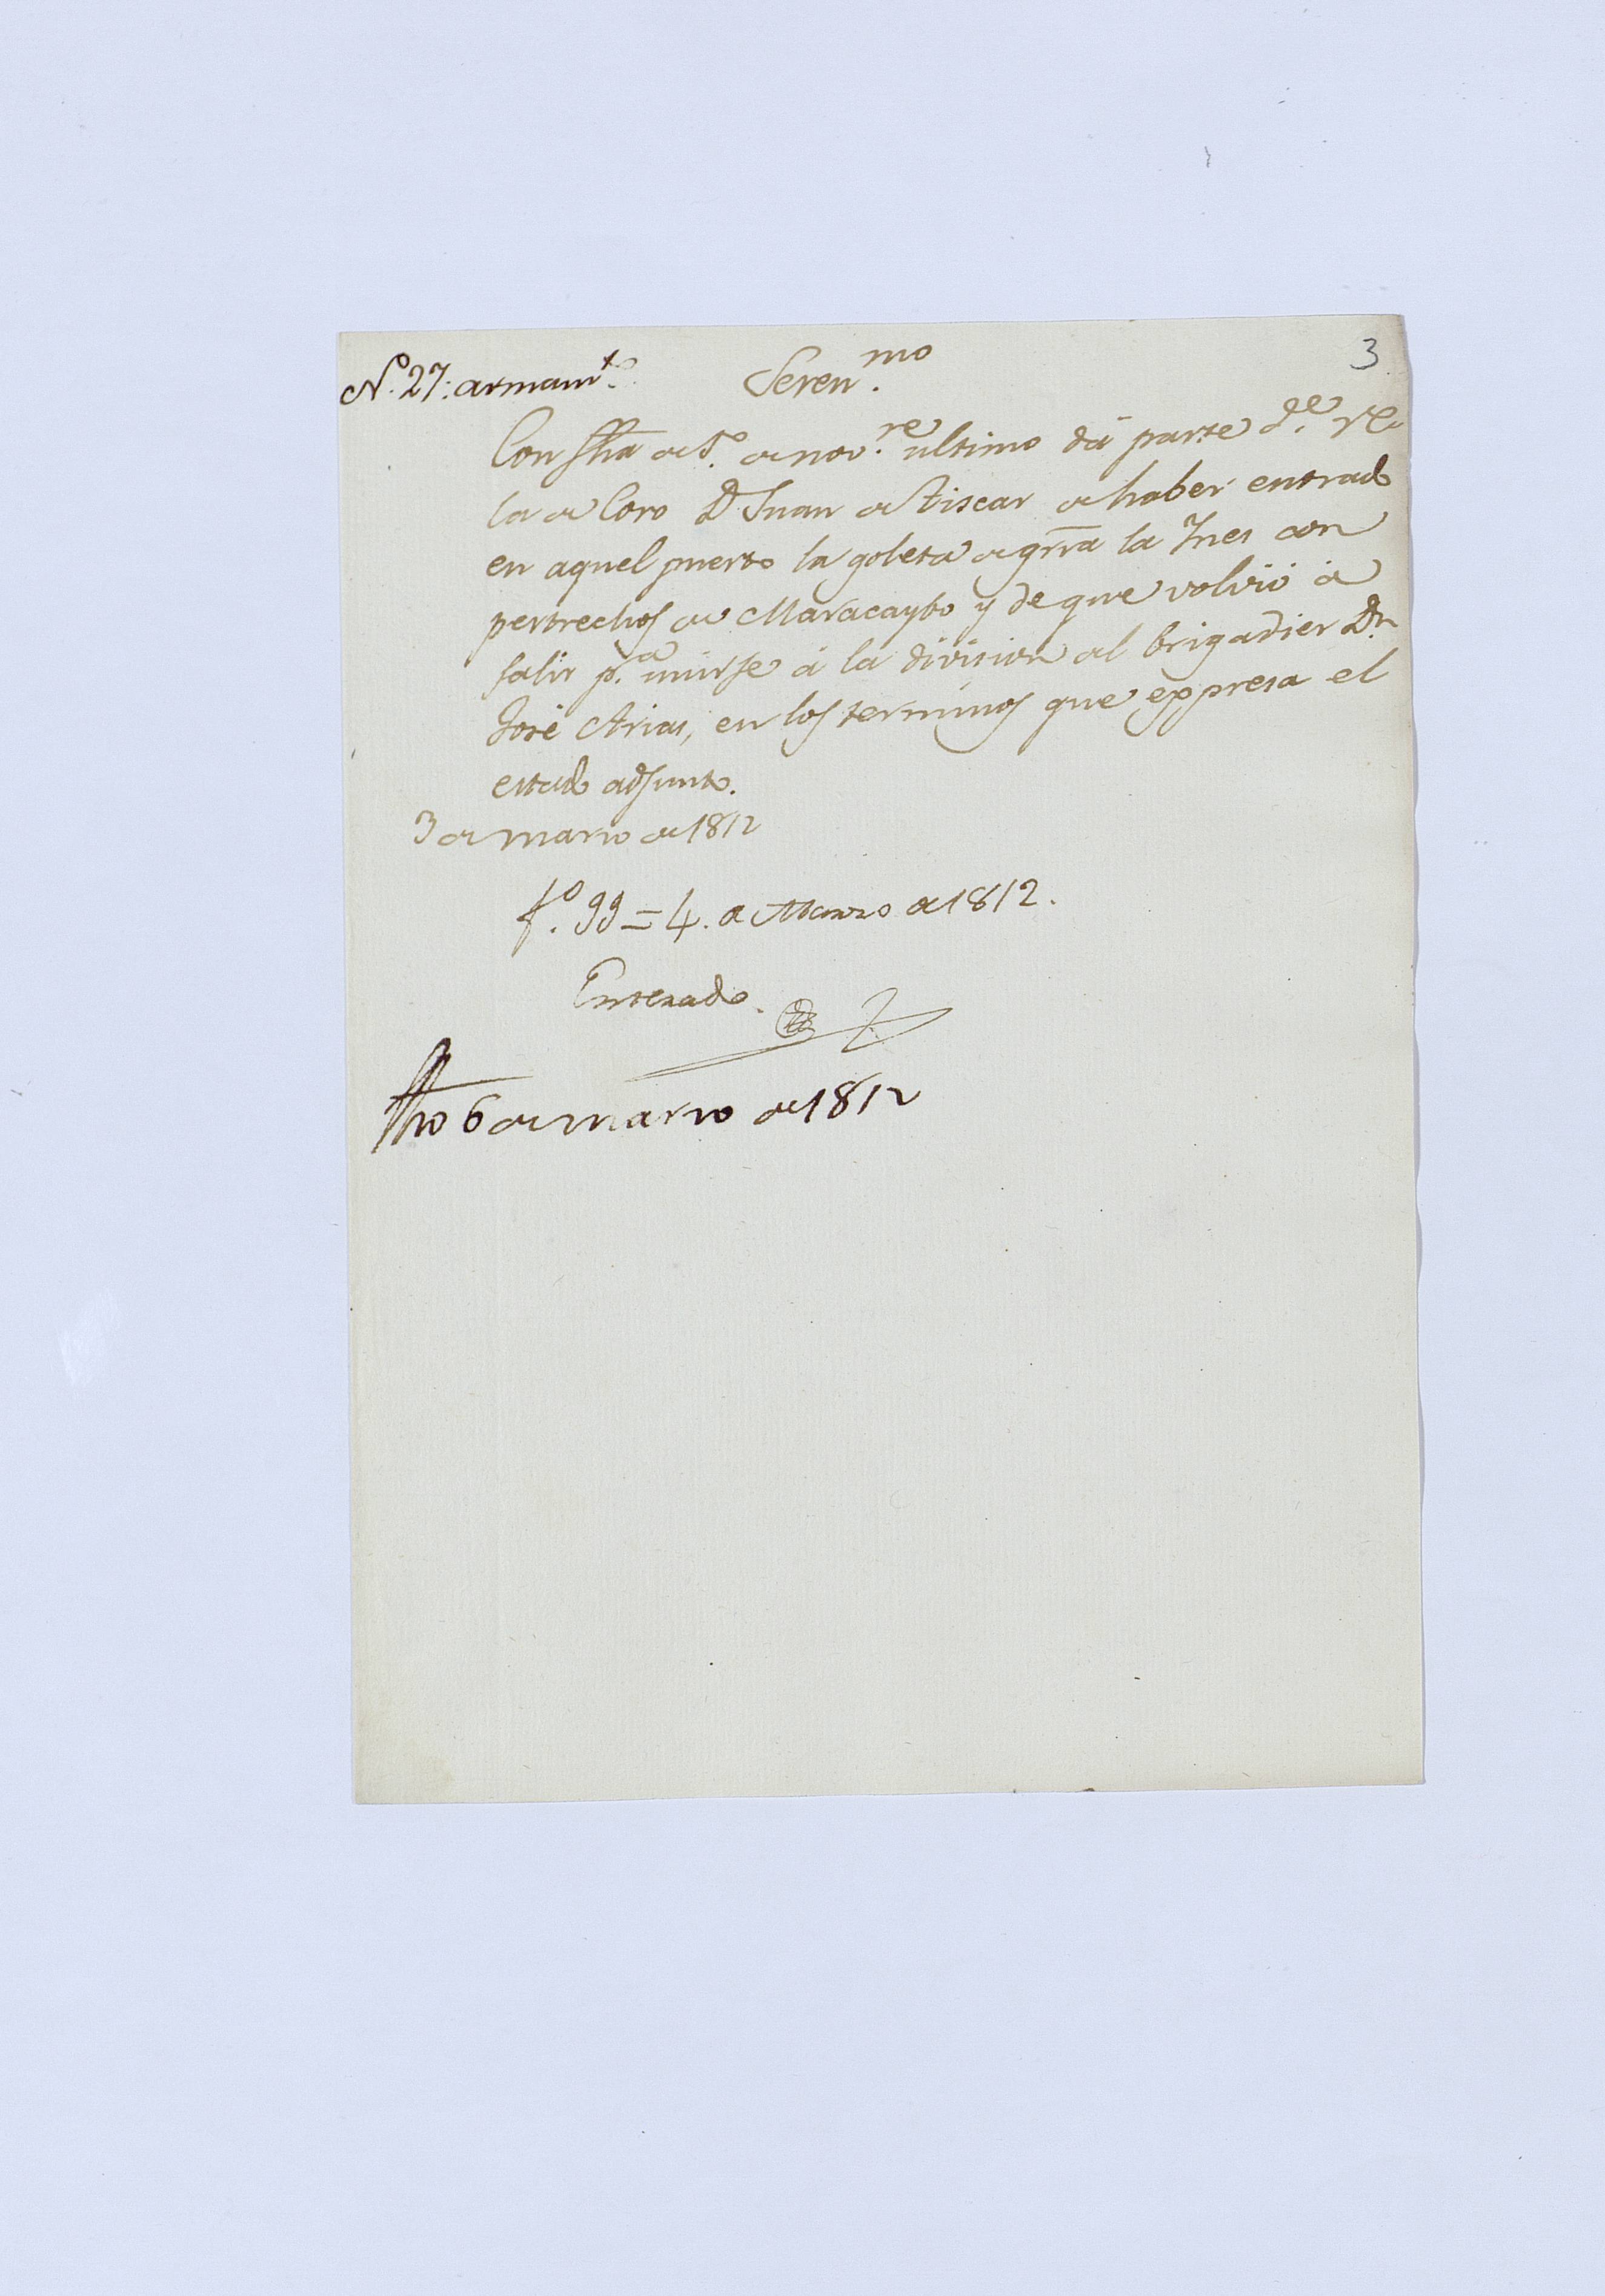 3
N.º 27: armam.to
Seren.mo
Con fha de 1.º de nov.re ultimo dá parte d.e Ve
la de Coro D Juan de Tiscar de haber entrado
en aquel puerto la goleta de grra la Ines con
pertrechos de Maracaybo y de que volvió á
salir p.a unirse á la division del brigadier Dn
José Arias, en los terminos que expresa el
estado adjunto.
3 de marzo de 1812
f.º 99 = 4. de Marzo de 1812.
Enterado.
fho 6 de marzo de 1812